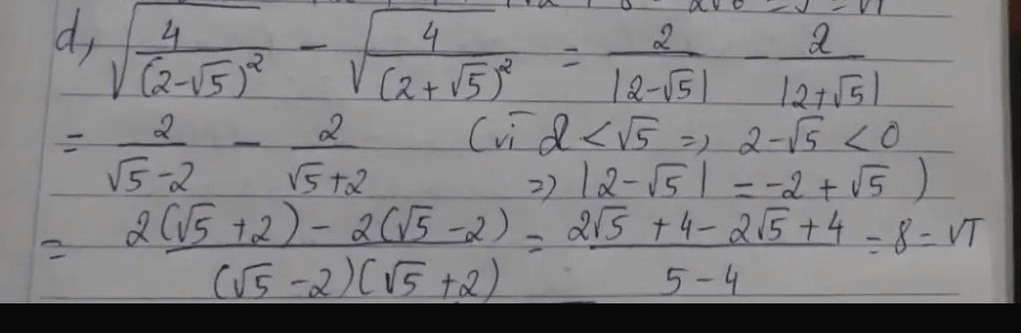 d, √(4/(2-√5)²) - √(4/(2+√5)²) = 2/|2-√5| - 2/|2+√5|
= 2/(√5-2) - 2/(√5+2) (vì 2 < √5 => 2-√5 < 0
=> |2-√5| = -2+√5)
= (2(√5+2) - 2(√5-2))/((√5-2)(√5+2)) = (2√5+4-2√5+4)/(5-4) = 8 = VT